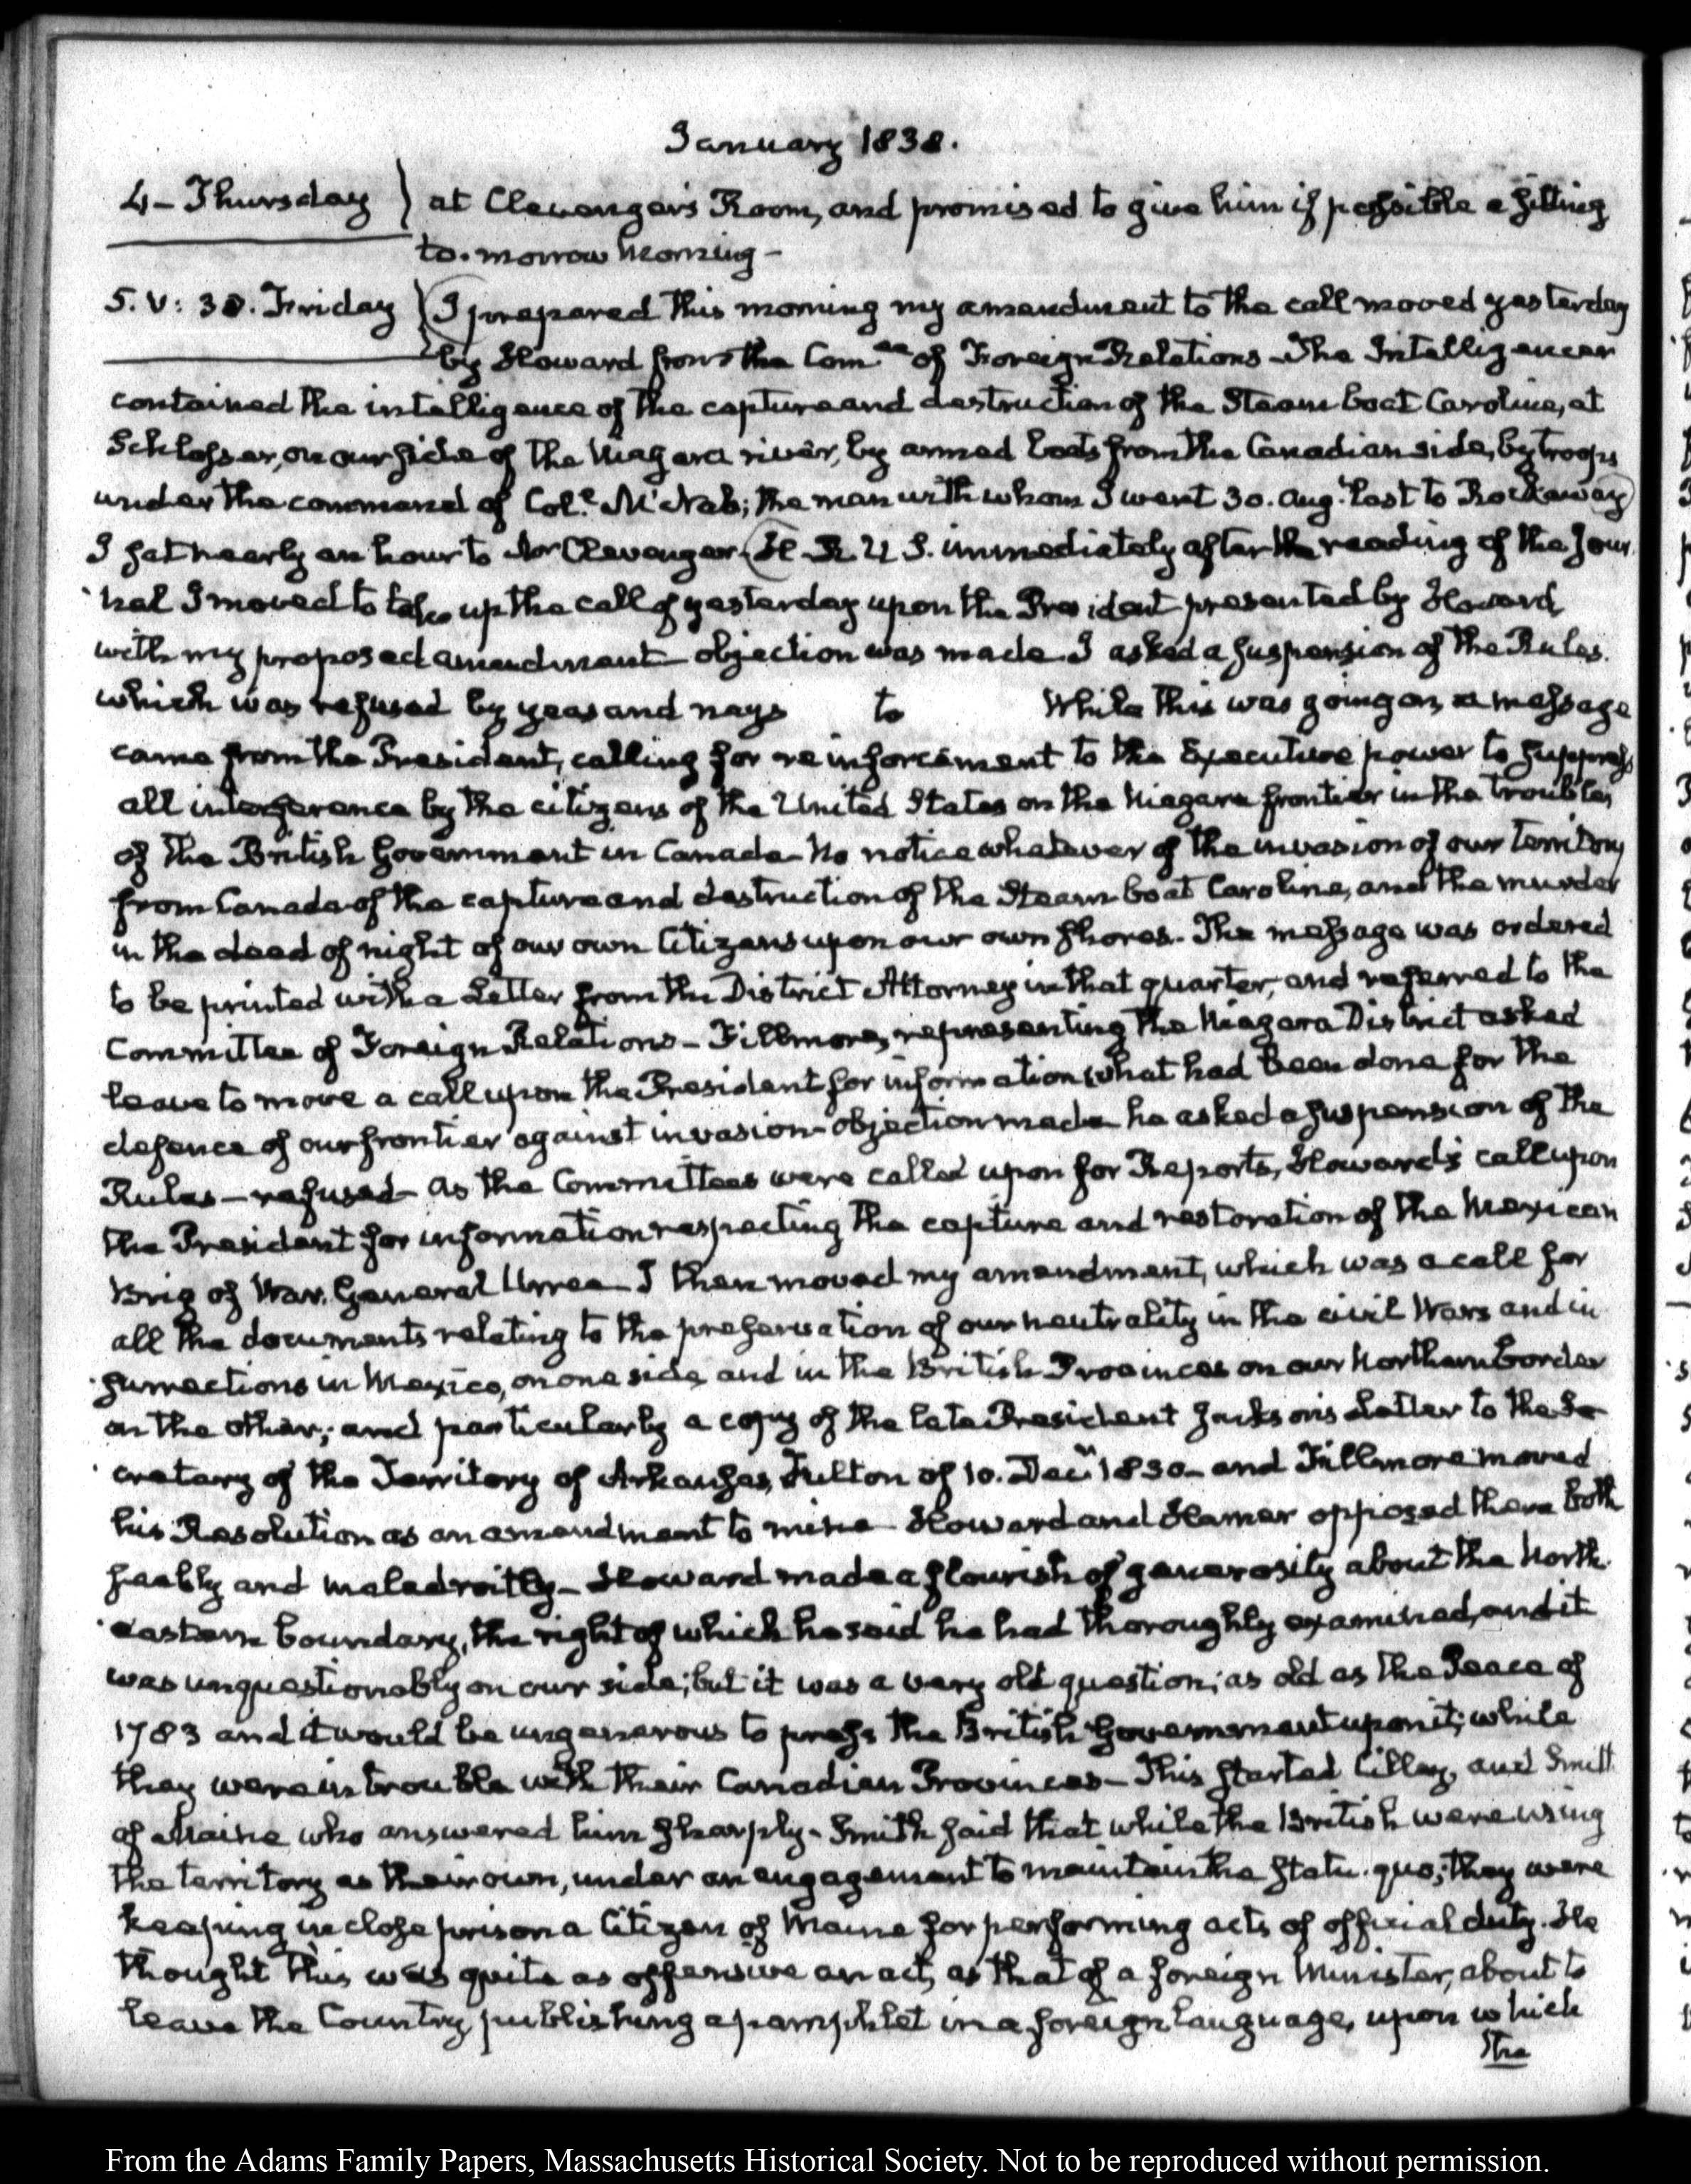 January 1838.
4 - Thursday } at Clevenger's Room, and promised to give him if possible a sitting
to-morrow Morning -
5. V: 30. Friday { I prepared this morning my amendment to the call moved yesterday
by Howard from the Com.ee of Foreign Relations - The Intelligencer
contained the intelligence of the capture and destruction of the Steam boat Caroline, at
Schlosser, on our side of the Niagara river, by armed boats from the Canadian side, by troops
under the command of Col.l McNab; the man with whom I went 30. Aug.t last to Rockaway
I sat nearly an hour to Mr Clevenger. H. R. U S. immediately after the reading of the Jour-
nal I moved to take up the call of yesterday upon the President presented by Howard,
with my proposed amendment - objection was made I asked a suspension of the Rules.
which was refused by yeas and nays to While this was going on, a message
came from the President, calling for reinforcement to the Executive power to suppress
all interference by the citizens of the United States on the Niagara frontier in the troubles
of the British Government in Canada - No notice whatever of the invasion of our territory
from Canada of the capture and destruction of the Steam boat Caroline, and the murder
in the dead of night of our own Citizens upon our own shores. The message was ordered
to be printed with a Letter from the District Attorney in that quarter, and referred to the
Committee of Foreign Relations - Fillmore, representing the Niagara District asked
leave to move a call upon the President for information what had been done for the
defence of our frontier against invasion - objection made he asked a suspension of the
Rules - refused - As the Committees were called upon for Reports, Howard's call upon
the President for information respecting the capture and restoration of the Mexican
Brig of War, General Urrea - I then moved my amendment, which was a call for
all the documents relating to the preservation of our neutrality in the civil Wars and in-
surrections in Mexico, on one side and in the British Provinces on our Northern border
on the other; and particularly a copy of the late President Jackson's Letter to the Se-
cretary of the Territory of Arkansas, Fulton of 10. Dec.r 1830 - and Fillmore moved
his Resolution as an amendment to mine - Howard and Hamer opposed them both
feebly and maladroitly - Howard made a flourish of generosity about the North-
eastern boundary, the right of which he said he had thoroughly examined, and it
was unquestionably on our side; but it was a very old question; as old as the Peace of
1783 and it would be ungenerous to press the British Government upon it; while
they were in trouble with their Canadian Provinces - This started Cilley, and Smith
of Maine who answered him sharply - Smith said that while the British were using
the territory as their own, under an engagement to maintain the statu-quo; they were
keeping in close prison a Citizen of Maine for performing acts of official duty. He
thought this was quite as offensive an act, as that of a foreign Minister, about to
leave the Country, publishing a pamphlet in a foreign language, upon which
the
From the Adams Family Papers, Massachusetts Historical Society. Not to be reproduced without permission.